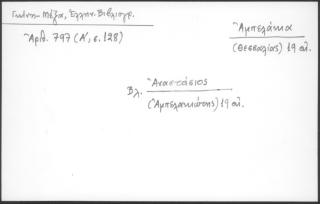 Γκίνη - Μέξα, Ἑλλην. Βιβλιογρ.
Ἀριθ. 797 (Α΄, σ. 128)
Ἀμπελάκια
(Θεσσαλίας) 19 αἰ.
Βλ. Ἀναστάσιος
(Ἀμπελακιώτης) 19 αἰ.